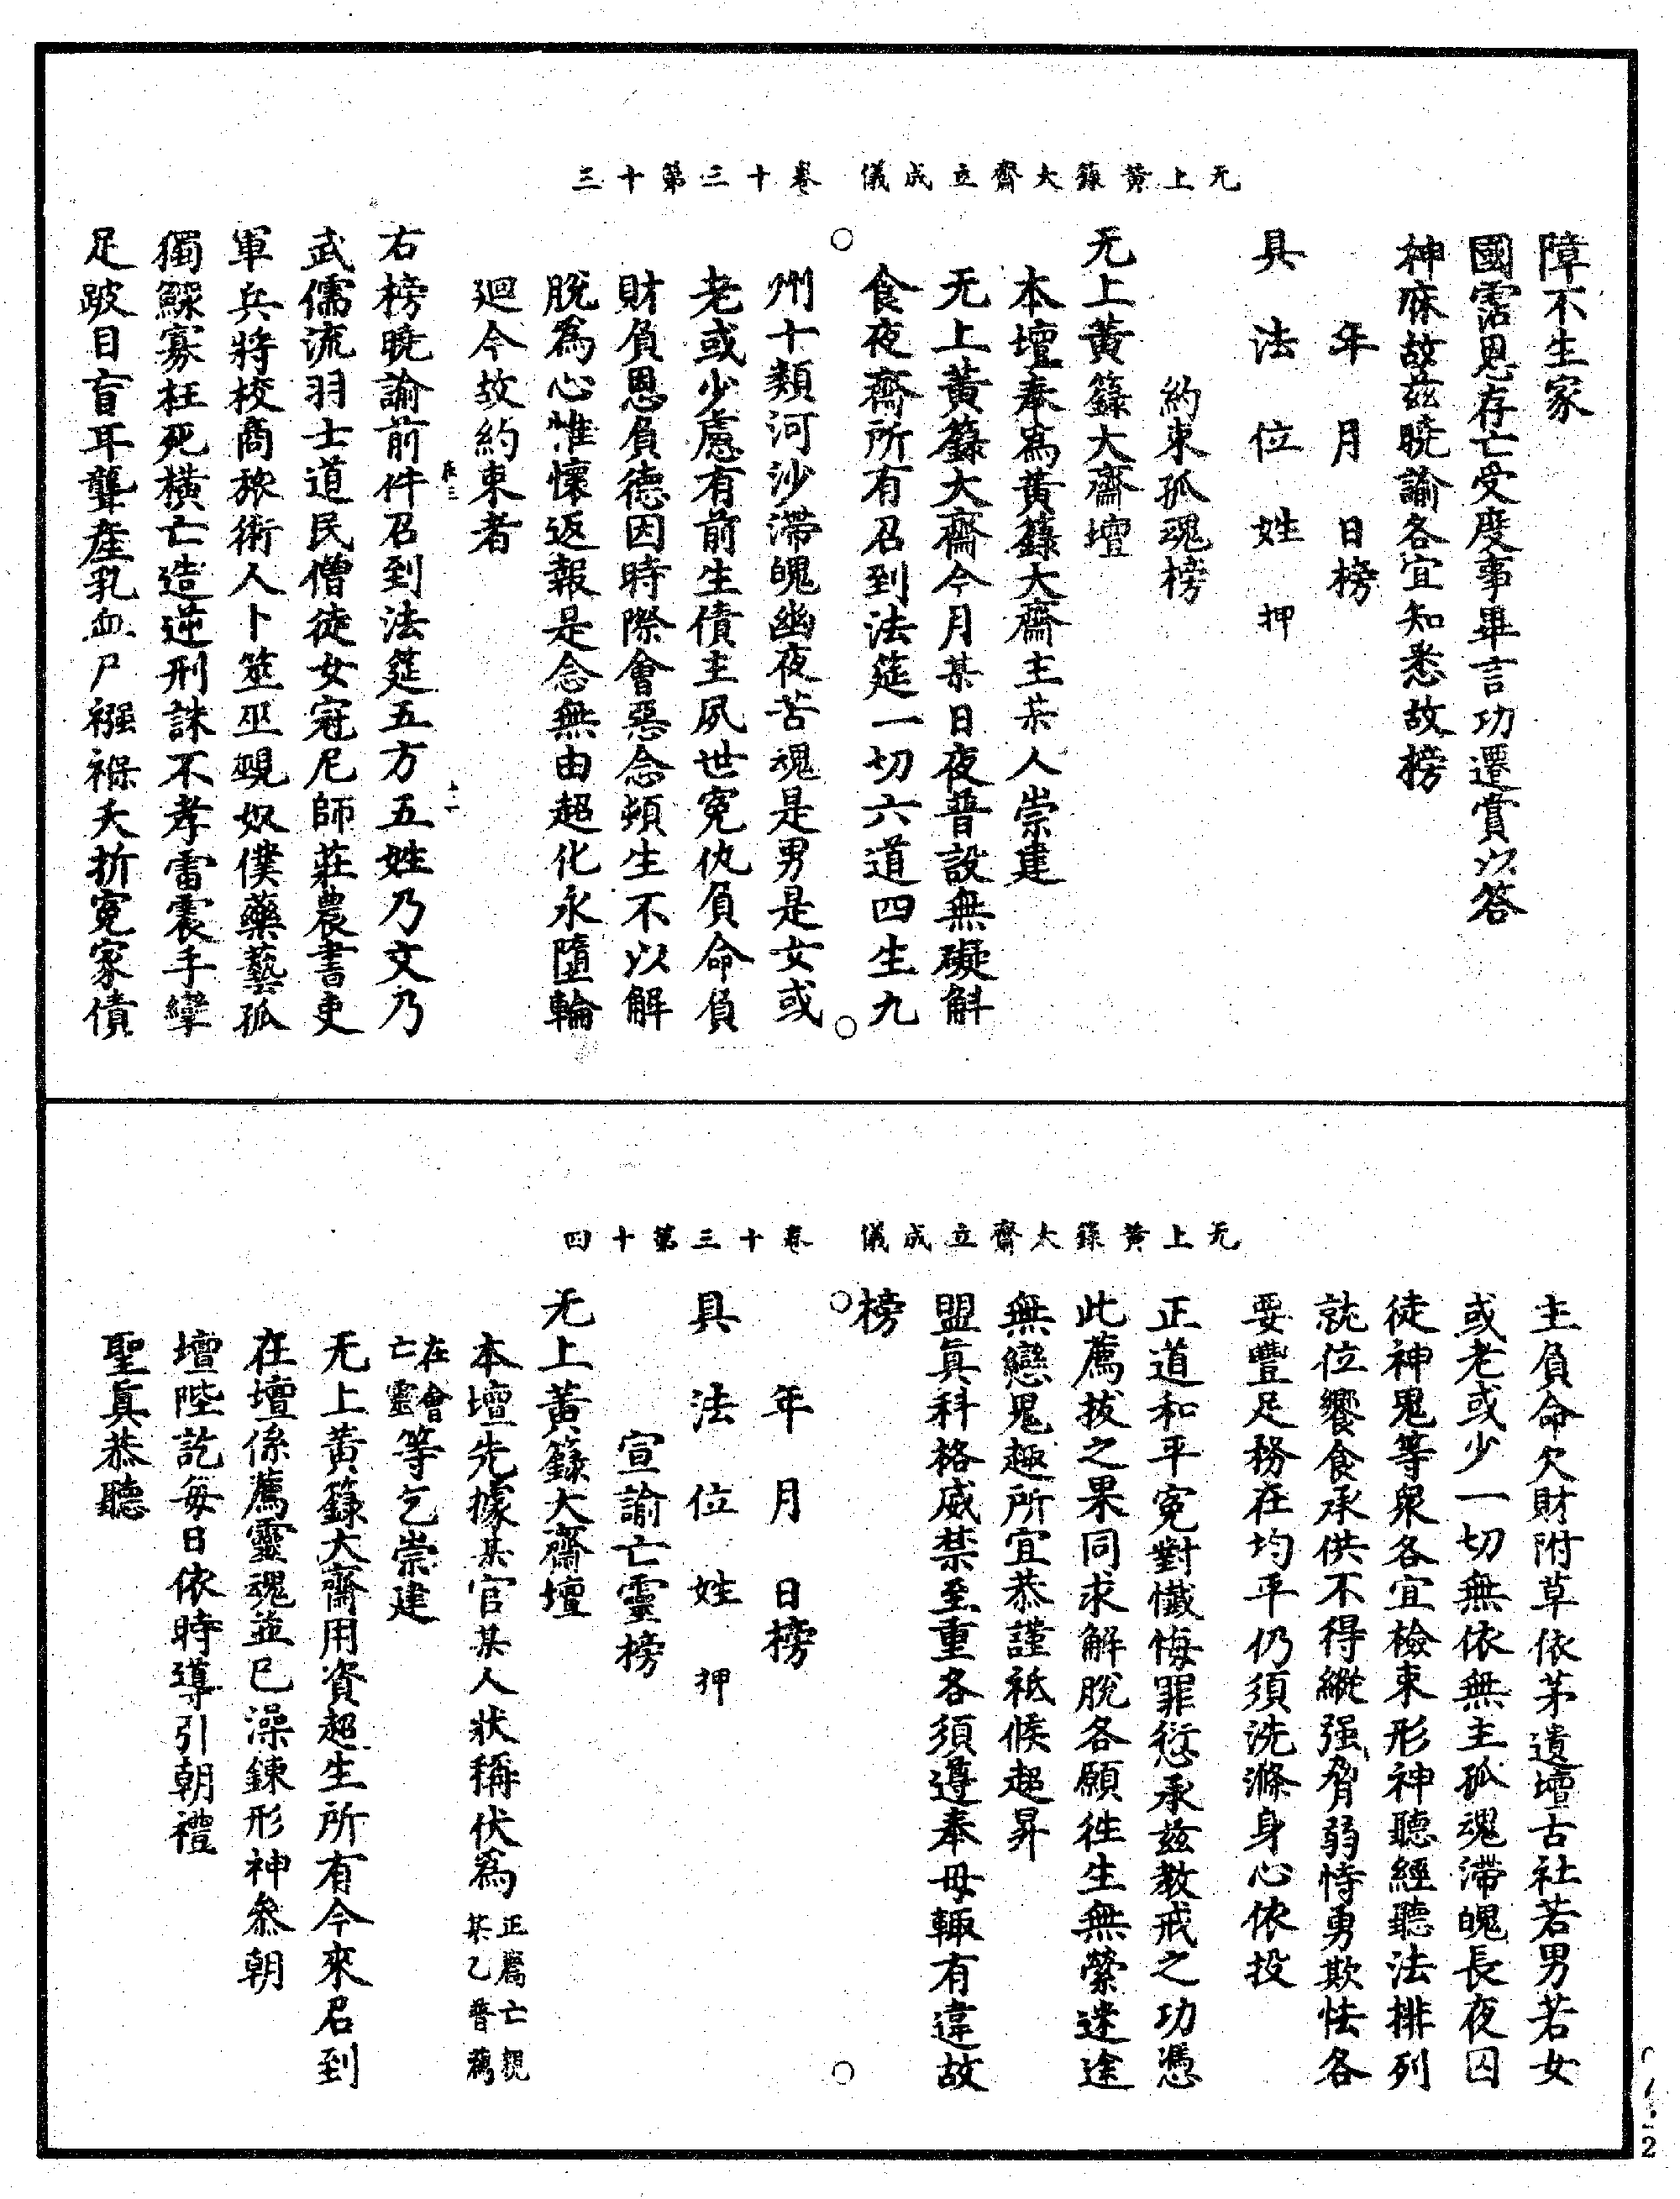 无上黃籙大齋立成儀 卷十三第十三
障不生家
國霑恩存亡受度事畢言功遷賞以答
神庥故茲曉諭各宜知悉故榜
年 月 日榜
具 法 位 姓 押
約束孤魂榜
无上黃籙大齋壇
本壇奉為黃籙大齋主某人崇建
无上黃籙大齋今月某日夜普設無礙斛
食夜齋所有召到法筵一切六道四生九
州十類河沙滯魄幽夜苦魂是男是女或
老或少慮有前生債主夙世冤仇負命負
財負恩負德因時際會惡念頻生不以解
脫為心惟懷返報是念無由超化永墮輪
廻今故約束者
右榜曉諭前件召到法筵五方五姓乃文乃
武儒流羽士道民僧徒女冠尼師莊農書吏
軍兵將校商旅術人卜筮巫覡奴僕藥藝孤
獨鰥寡枉死橫亡造逆刑誅不孝雷震手攣
足跛目盲耳聾產乳血尸襁褓夭折冤家債
无上黃籙大齋立成儀 卷十三第十四
主負命欠財附草依茅遺壇古社若男若女
或老或少一切無依無主孤魂滯魄長夜囚
徒神鬼等眾各宜檢束形神聽經聽法排列
就位饗食承供不得縱强脅弱恃勇欺怯各
要豐足務在均平仍須洗滌身心依投
正道和平冤對懺悔罪愆承茲教戒之功憑
此薦拔之果同求解脫各願往生無縈迷途
無戀鬼趣所宜恭謹祇候超昇
盟眞科格威禁至重各須遵奉毋輙有違故
榜
年 月 日榜
具 法 位 姓 押
宣諭亡靈榜
无上黃籙大齋壇
本壇先據某官某人狀稱伏為正薦亡親某乙普薦
在會亡靈等乞崇建
无上黃籙大齋用資超生所有今來召到
在壇係薦靈魂並已澡鍊形神叅朝
壇陛訖每日依時導引朝禮
聖眞恭聽